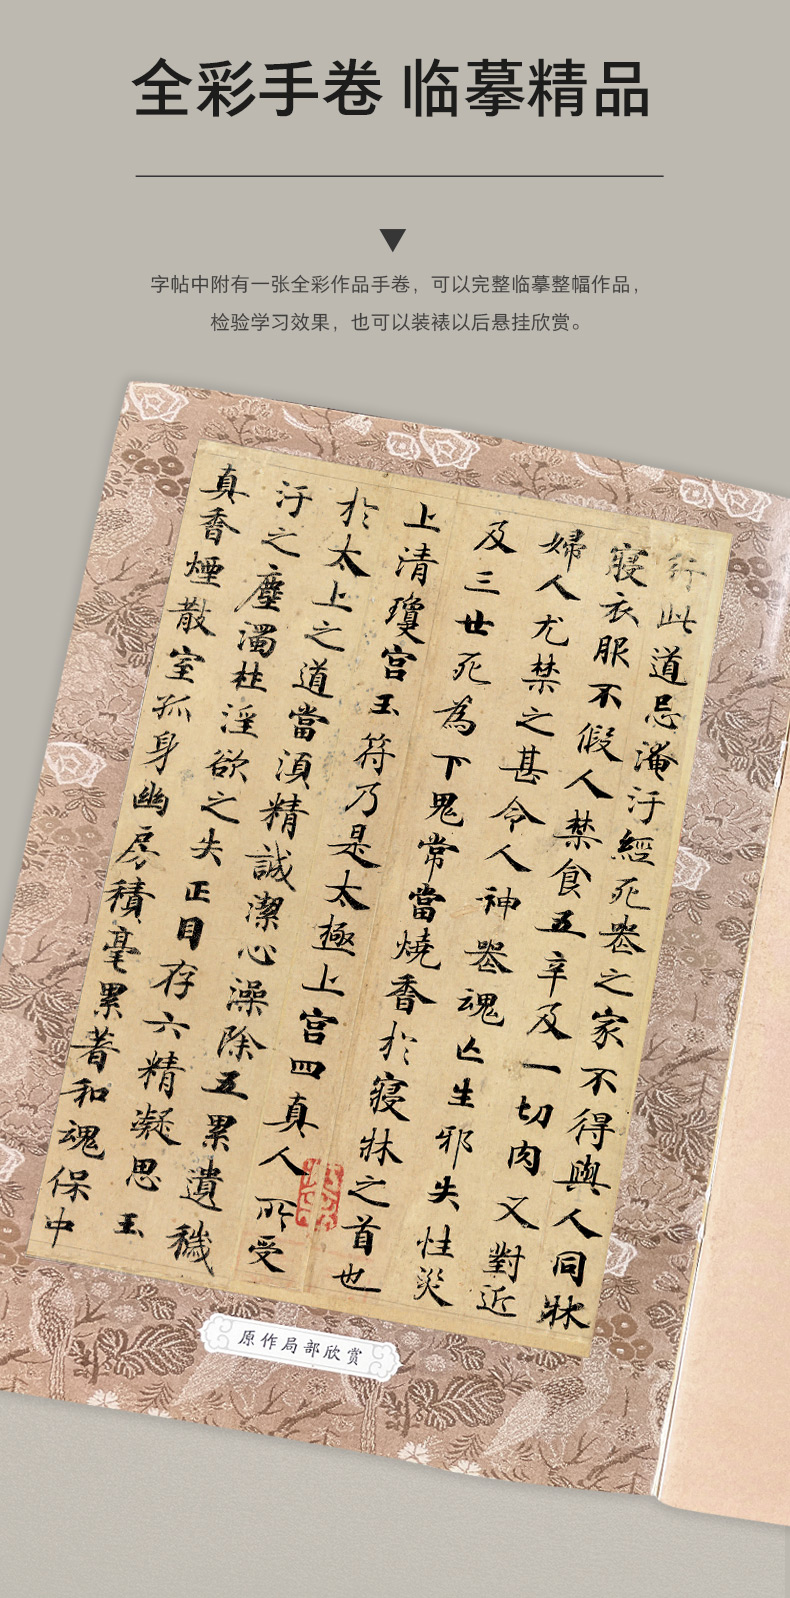 全彩手卷 临摹精品
字帖中附有一张全彩作品手卷，可以完整临摹整幅作品，
检验学习效果，也可以装裱以后悬挂欣赏。
行此道忌淹汙經死喪之家不得與人同牀
寢衣服不假人禁食五辛及一切肉又對近
婦人尤禁之甚令人神喪魂亡生邪失性災
及三世死為下鬼常當燒香於寢牀之首也
上清瓊宮玉符乃是太極上宮四真人所受
於太上之道當須精誠潔心澡除五累遺穢
汙之塵濁杜淫欲之失正目存六精凝思玉
真香煙散室孤身幽房積毫累著和魂保中
原作局部欣赏